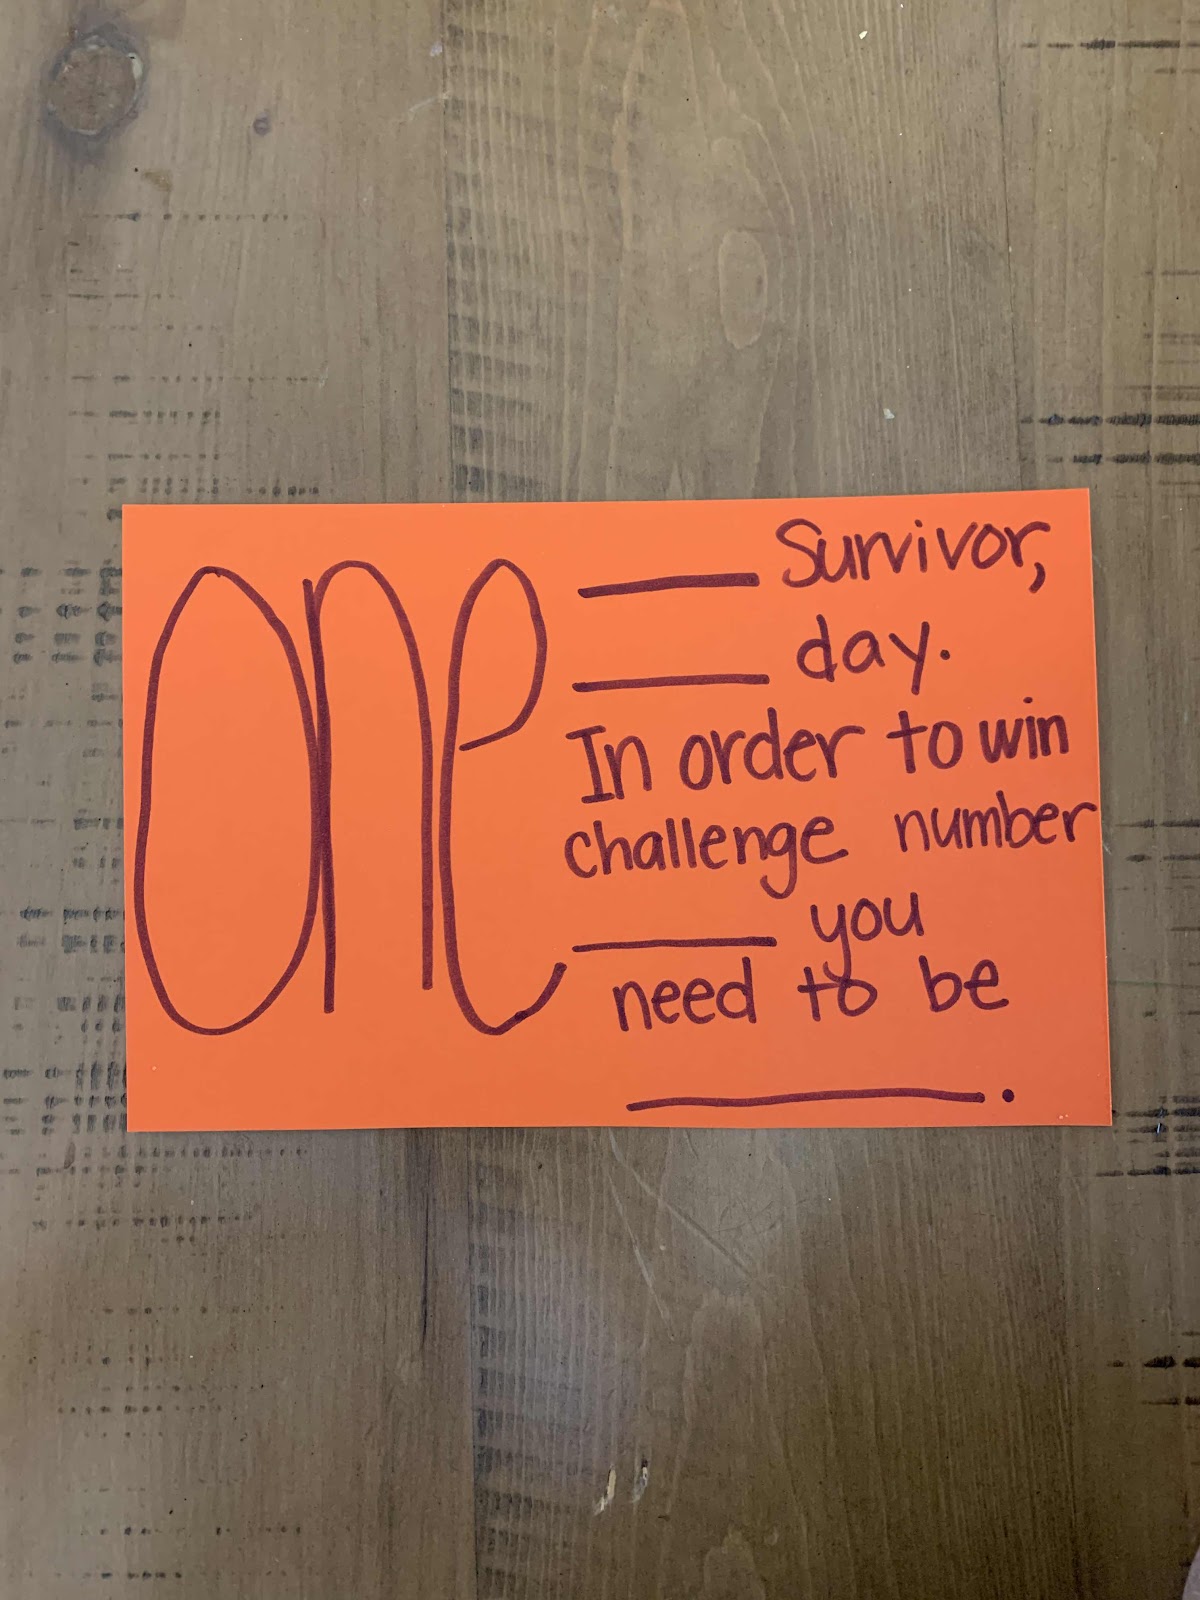 one
___ Survivor,
___ day.
In order to win
challenge number
___ you
need to be
___.